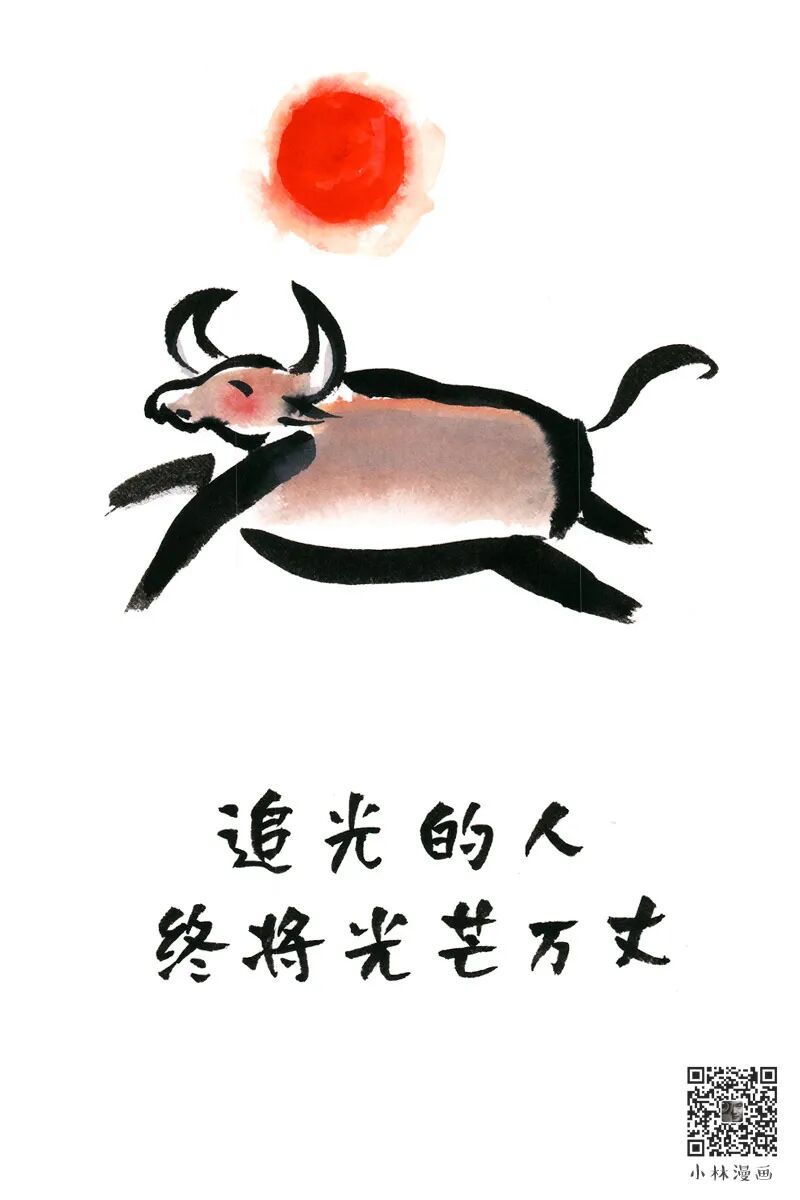 追光的人
终将光芒万丈
小林漫画